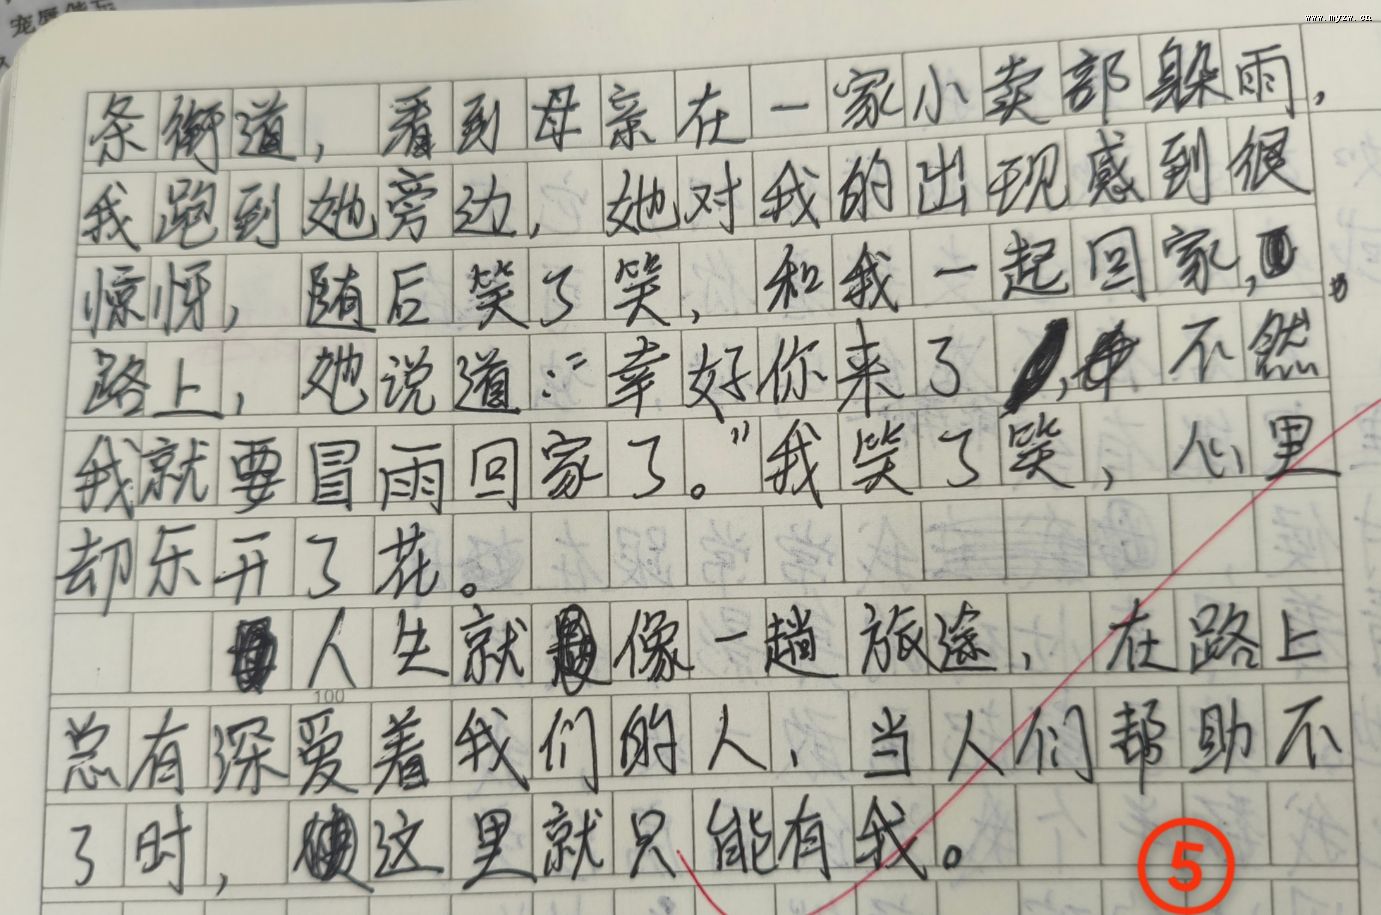 www.myzw.cn
条街道，看到母亲在一家小卖部躲雨，
我跑到她旁边，她对我的出现感到很
惊呀，随后笑了笑，和我一起回家，
路上，她说道：“幸好你来了，不然
我就要冒雨回家了。”我笑了笑，心里
却乐开了花。
人生就像一趟旅途，在路上
总有深爱着我们的人，当人们帮助不
了时，这里就只能有我。
100
5